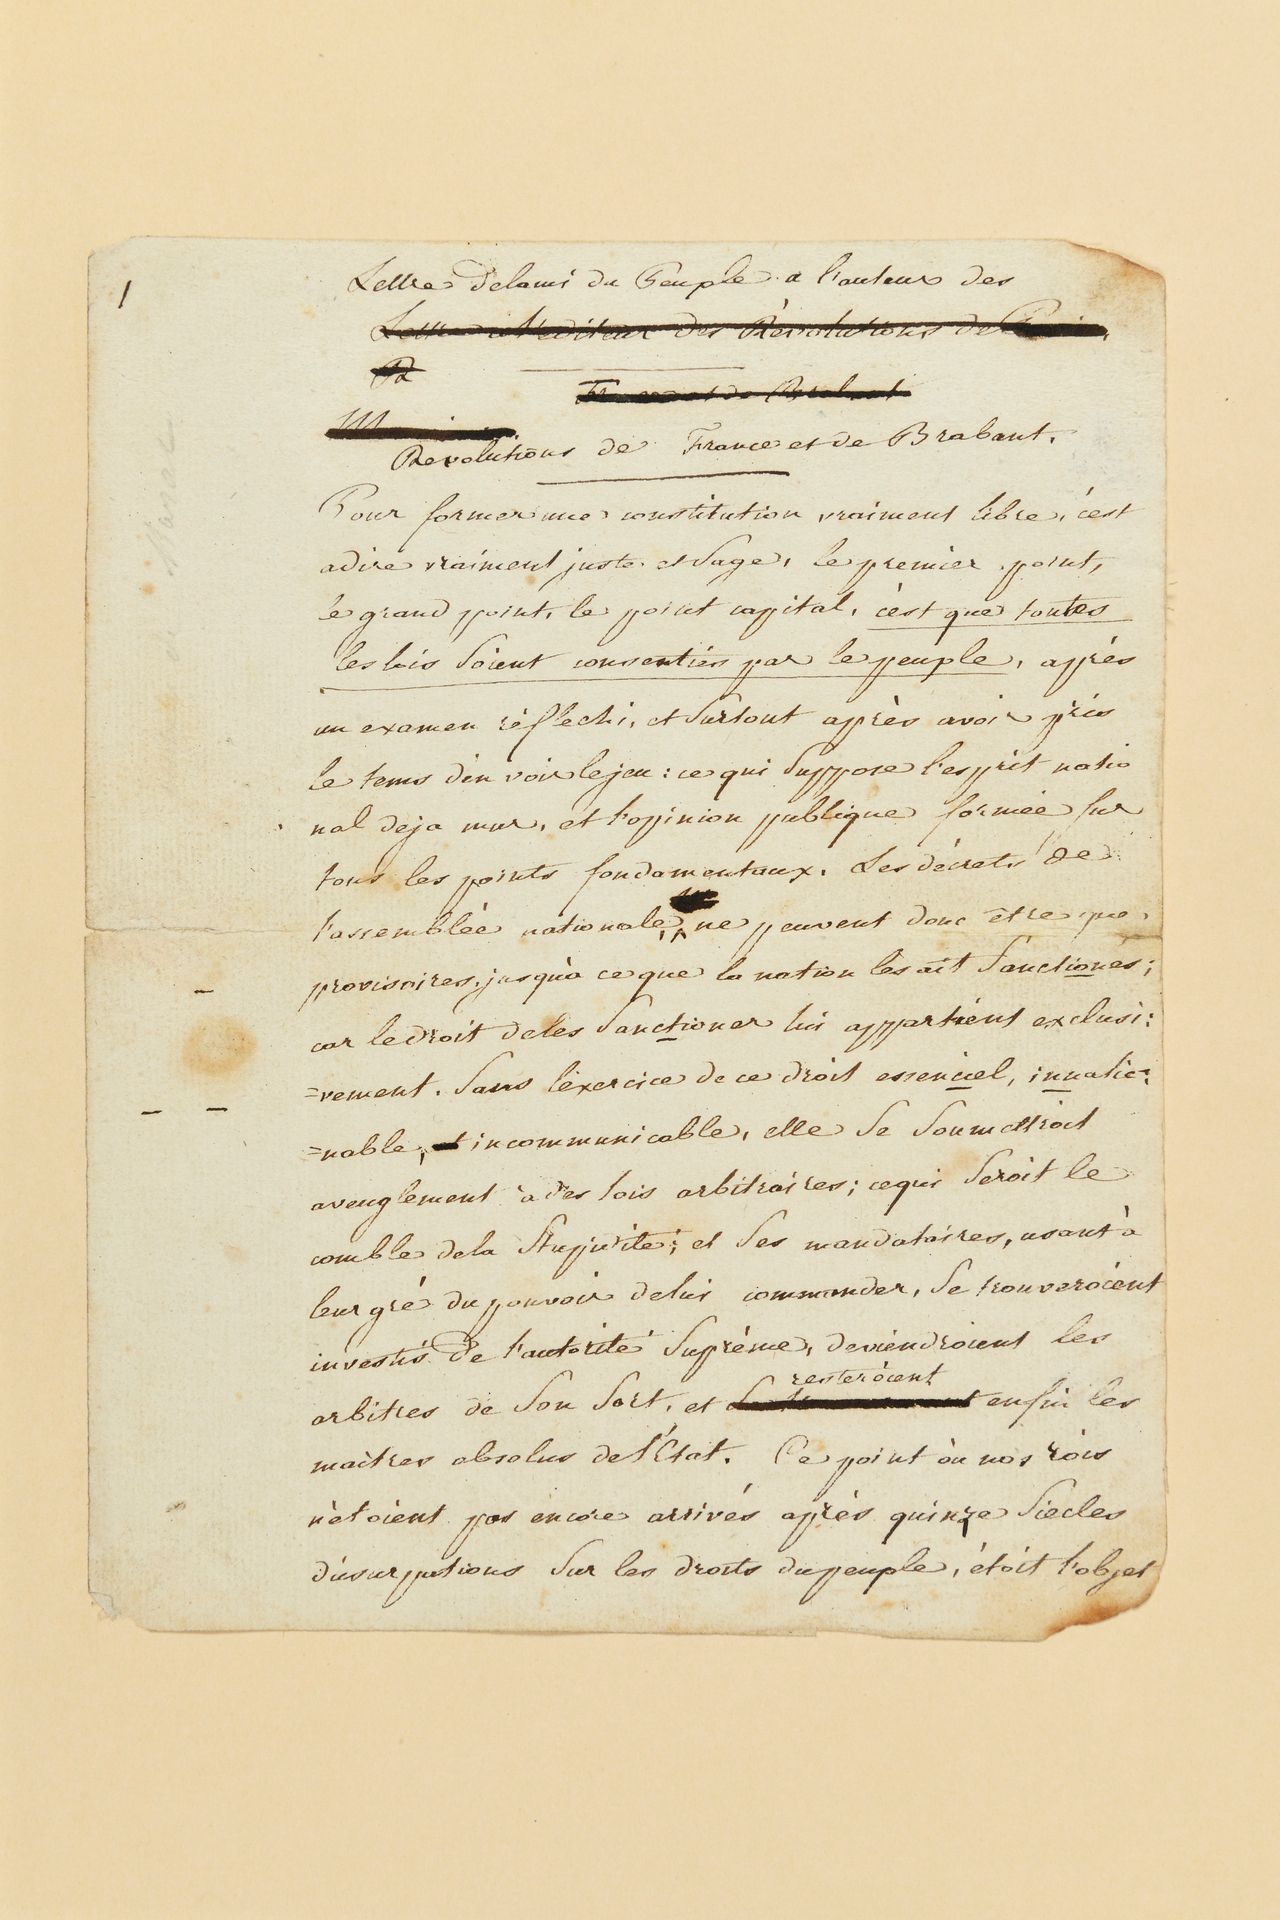 1
Lettre delami du Peuple a l'auteur des
Lettre a l'editeur des Révolutions de
Revolutions de France et de Brabant.
Pour former une constitution vraiment libre, c'est
adire vraiment juste et Sage, le premier point,
le grand point, le point capital, c'est que toutes
les lois Soient consenties par le peuple, après
un examen réflechi, et Surtout après avoir pris
le tems d'en voir le jeu: ce qui Suppose l'esprit natio
nal deja mur, et l'opinion publique formée Sur
tous les points fondamentaux. Les décrets de
l'assemblée nationale, ne peuvent donc être que
provisoires, jusqu'à ce que la nation les ait Sanctionés;
car le droit de les Sanctioner lui appartient exclusi:
=vement. Sans l'exercice de ce droit essenciel, innalie:
=nable, incommunicable, elle Se Soumettroit
aveuglement à des lois arbitraires; cequi Seroit le
comble dela Stupidité; et Ses mandataires, usant à
leur gré du pouvoir delui commander, Se trouveroient
investis de l'autorité Suprème, deviendroient les
resteroient
arbitres de Son Sort, et enfin les
maitres absolus de l'Etat. Ce point où nos rois
n'etoient pas encore arrivés après quinze Siecles
d'usurpations Sur les droits du peuple, étoit l'objet